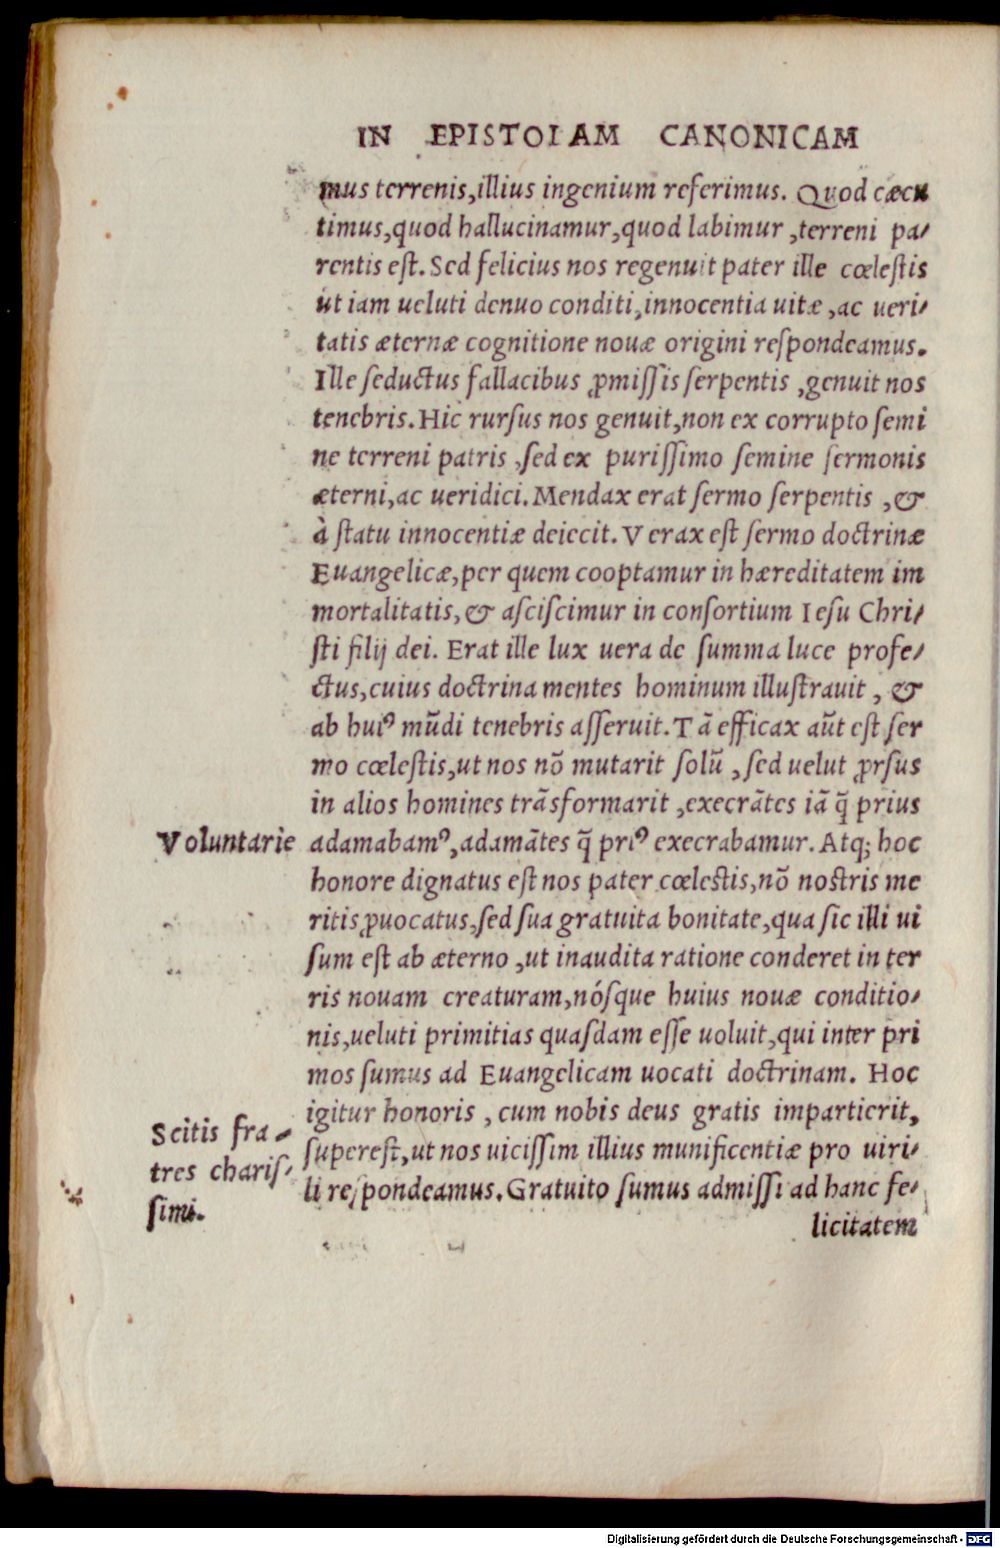 IN EPISTOLAM CANONICAM
mus terrenis,illius ingenium referimus. Quod cæcu
timus,quod hallucinamur,quod labimur ,terreni pa⸗
rentis eſt. Sed felicius nos regenuit pater ille cœleſtis
ut iam ueluti denuo conditi,innocentia uitæ ,ac ueri⸗
tatis æternæ cognitione nouæ origini reſpondeamus.
Ille ſeductus fallacibus ꝓmiſſis ſerpentis ,genuit nos
tenebris. Hic rurſus nos genuit,non ex corrupto ſemi
ne terreni patris ,ſed ex puriſſimo ſemine ſermonis
æterni,ac ueridici. Mendax erat ſermo ſerpentis ,&
à ſtatu innocentiæ deiecit. Verax eſt ſermo doctrinæ
Euangelicæ,per quem cooptamur in hæreditatem im
mortalitatis,& aſciſcimur in conſortium Ieſu Chri⸗
ſti filij dei. Erat ille lux uera de ſumma luce profe⸗
ctus,cuius doctrina mentes hominum illuſtrauit , &
ab huiꝰ mūdi tenebris aſſeruit. Tā efficax aūt eſt ſer
mo cœleſtis,ut nos nō mutarit ſolū ,ſed uelut ꝓrſus
in alios homines trāsformarit ,execrātes iā q̃ prius
Voluntarie adamabamꝰ,adamātes q̃ priꝰ execrabamur. Atq; hoc
honore dignatus eſt nos pater cœleſtis,nō noſtris me
ritis ꝓuocatus,ſed ſua gratuita bonitate,qua ſic illi ui
ſum eſt ab æterno ,ut inaudita ratione conderet in ter
ris nouam creaturam,nóſque huius nouæ conditio⸗
nis,ueluti primitias quaſdam eſſe uoluit,qui inter pri
mos ſumus ad Euangelicam uocati doctrinam. Hoc
igitur honoris , cum nobis deus gratis impartierit,
Scitis fra⸗
ſupereſt,ut nos uiciſſim illius munificentiæ pro uiri⸗
tres chariſ⸗
li reſpondeamus. Gratuito ſumus admiſſi ad hanc fe⸗
ſimi.
licitatem
Digitalisierung gefördert durch die Deutsche Forschungsgemeinschaft - DFG